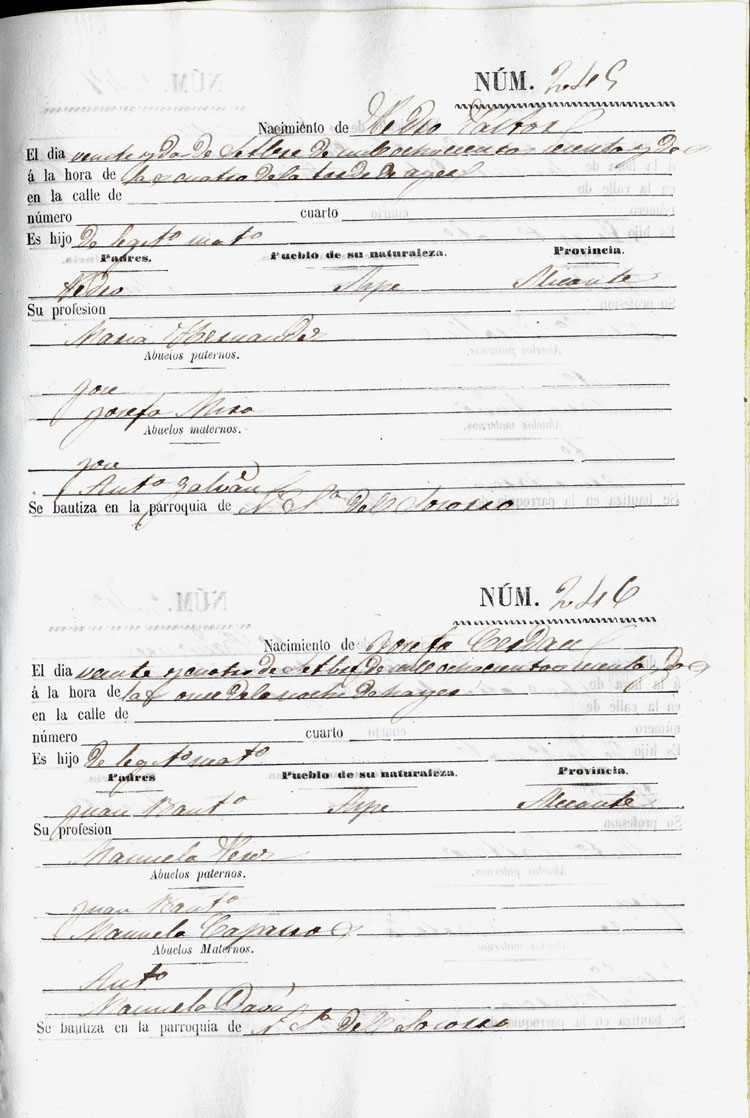 NÚM. 245
Nacimiento de Pedro Pastor
El dia veinte y dos de Setbre de mil ochocientos sesenta y dos
á la hora de las cuatro de la tarde de ayer
en la calle de
número cuarto
Es hijo de legit.º mat.º
Padres. Pueblo de su naturaleza. Provincia.
Pedro Aspe Alicante
Su profesion
Maria Hernandez
Abuelos paternos.
Jose
Josefa Mira
Abuelos maternos.
Jose
Ant.ª Galvañ
Se bautiza en la parroquia de N.ª S.ª del Socorro
NÚM. 246
Nacimiento de Josefa Cerdan
El dia veinte y cuatro de Setbre de mil ochocientos sesenta y dos
á la hora de las once de la noche de ayer
en la calle de
número cuarto
Es hijo de legit.º mat.º
Padres Pueblo de su naturaleza. Provincia.
Juan Baut.ª Aspe Alicante
Su profesion
Manuela
Abuelos paternos.
Juan Baut.ª
Manuela Caparros
Abuelos Maternos.
Ant.º
Manuela Davó
Se bautiza en la parroquia de N.ª S.ª del Socorro